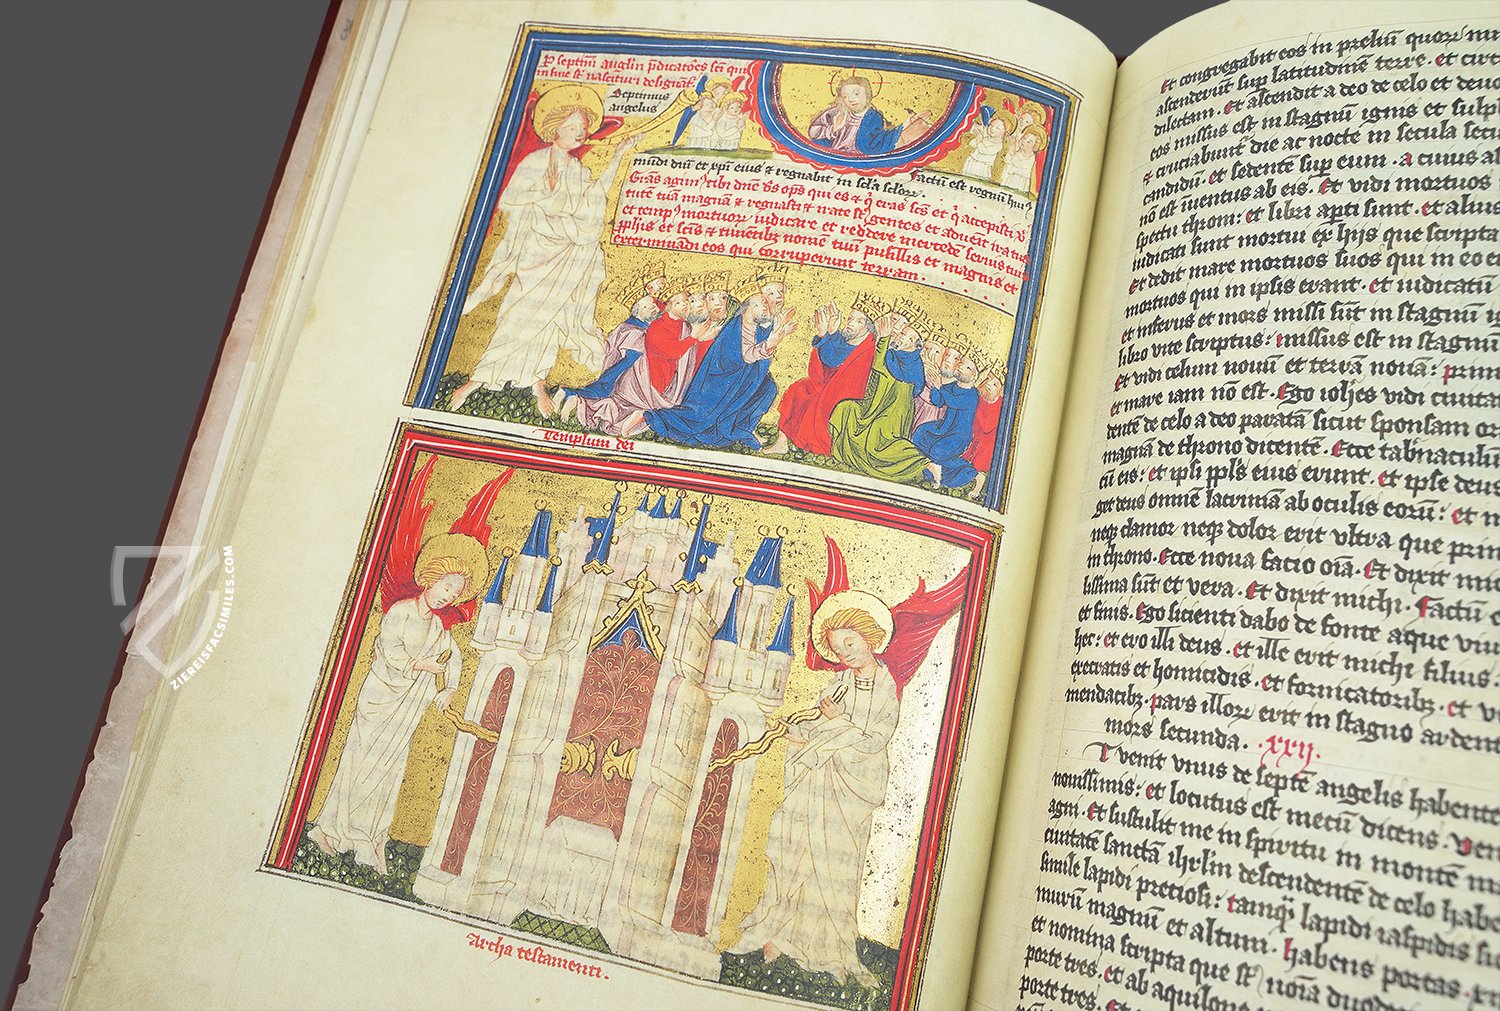 P septim angelm pdicatoēs scī qui
in fine sr nascituri designāt.
Septimus
angelus
mūdi dnī et xpī eius & regnabit in scl'a sclor. Factum est regnū huiꝰ
Grās agimꝰ tibi dne dꝰs ops qui es & q' eras scs et q' accepisti
tutē tuā magnā & regnasti & irate st' gentes et advēit ira tua
et tempꝰ mortuor iudicare et reddere mercedē servis tuis
pphis et scis & timētibꝫ nomē tuū pusillis et magnis et
exterminādi eos qui corruperunt terram
Templum dei
Archa testamenti.
Et congregabit eos in preliū quorꝝ
ascenderunt sup latitudinē terre. et circ
dilectam. Et ascendit a deo de celo et devo
eos missus est in stagnū ignis et sulph
& cruciabunt die ac nocte in secula secu
candidū. et sedentē sup eum. a cuius as
nō est inventus ab eis. Et vidi mortuos
spectu throni: et libri apti sunt. et alius
iudicati sunt mortui ex hijs que scripta
Et dedit mare mortuos suos qui in eo e
mortuos qui in ipsis erant. et iudicatū
et infernus et mors missi sūt in stagnū ig
libro vite scriptus: missus est in stagnū
Et vidi celum novū et terrā novā: prim
et mare iam nō est. Ego iohes vidi civita
dentē de celo a deo paratā sicut sponsam or
magnā de throno dicentē. Ecce tabnaculū
cū eis: et ipsi ppls eius erunt. et ipse deus
get deus omnē lacrimā ab oculis eorū: et m
neqꝫ clamor neqꝫ dolor erit ultra que prim
in throno. Ecce nova facio oīa. Et dixit mi
lissima sūt et vera. Et dixit michi. factū e
et finis. Ego sicienti dabo de fonte aque viv
hec: et ero illi deus. et ille erit michi filius.
execratis et homicidis. et fornicatoribꝫ. et v
mendacibꝫ. pars illorꝝ erit in stagno ardent
mors secunda. .xxij.
T venit unus de septē angelis habente
novissimis: et locutus est mecū dicens. Ven
agni. Et sustulit me in spiritu in montē m
civitatē sanctā ihrlm descendentē de celo habe
simile lapidi precioso: tamqꝫ lapidi iaspidis
murū magnū et altum. habens portas xi
et nomina scripta que st' noīa duode
porte tres. et ab aquilone
porte tres. Et
ZIEREISFACSIMILES.COM